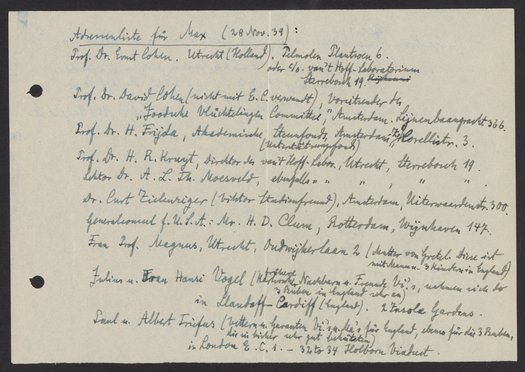 Adressenliste für Max (28 Nov. 39):
Prof. Dr. Ernst Cohen. Utrecht (Holland), Tilmolen Plantsoen 6.
oder c/o. van't Hoff-Laboratorium
Sterrebosch 19
Prof. Dr. David Cohen (nicht mit E.C. verwandt), Vorsitzender des
"Joodsche Vluchtelingen Committee", Amsterdam, Lijnenbaansgracht 366.
Prof. Dr. H. Frijda, Akademische Steunfonds, Amsterdam Z, Corellistr. 3.
(Unterstützungsfond)
Prof. Dr. H. R. Kruyt, Direktor des van't Hoff-Labor., Utrecht, Sterrebosch 19.
Lektor Dr. A. L. Th. Moesveld, ebenfalls " " , " , "
Dr. Curt Zielenziger (Viktors Studienfreund), Amsterdam, Uiterwaardenstr. 300.
Generalconsul f. U.S.A.: Mr. H. D. Clum, Rotterdam, Wijnhaven 147.
Frau Prof. Magnus, Utrecht, Oudwijkerlaan 2 (Mutter von Gretel. Diese ist
mit Mann u. 3 Kindern in England)
Julius u. Frau Hansi Vogel (Karlsruher Nachbarn u. Freunde Vi's, nehmen sich der
3 Buben in England sehr an)
in Llandaff-Cardiff (England). 2 Insola Gardens.
Saul u. Albert Dreifus (Vettern u. Garanten Vi's u. Ma's für England, ebenso für die 3 Buben,
die sie bisher sehr gut behüteten)
in London E.C.1. – 32 to 34 Holborn Viaduct.